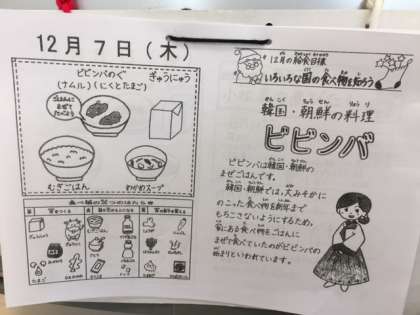 12月7日(木)
ビビンバのぐ
(ナムル)(にくとたまご)
ぎゅうにゅう
ごはんに
まぜて
たべよう
むぎごはん
わかめスープ
食べ物の3つのはたらき
ぎゅうにゅう
たまご
12月の給食目標
いろいろな国の食べ物を知ろう
韓国・朝鮮の料理
ビビンバ
ビビンバは韓国・朝鮮の
まぜごはんです。
韓国・朝鮮では、大みそかに
のこった食べ物を新年まで
もちこさないようにするため、
家にある食べ物をごはんに
まぜて食べていたのがビビンバの
始まりといわれています。